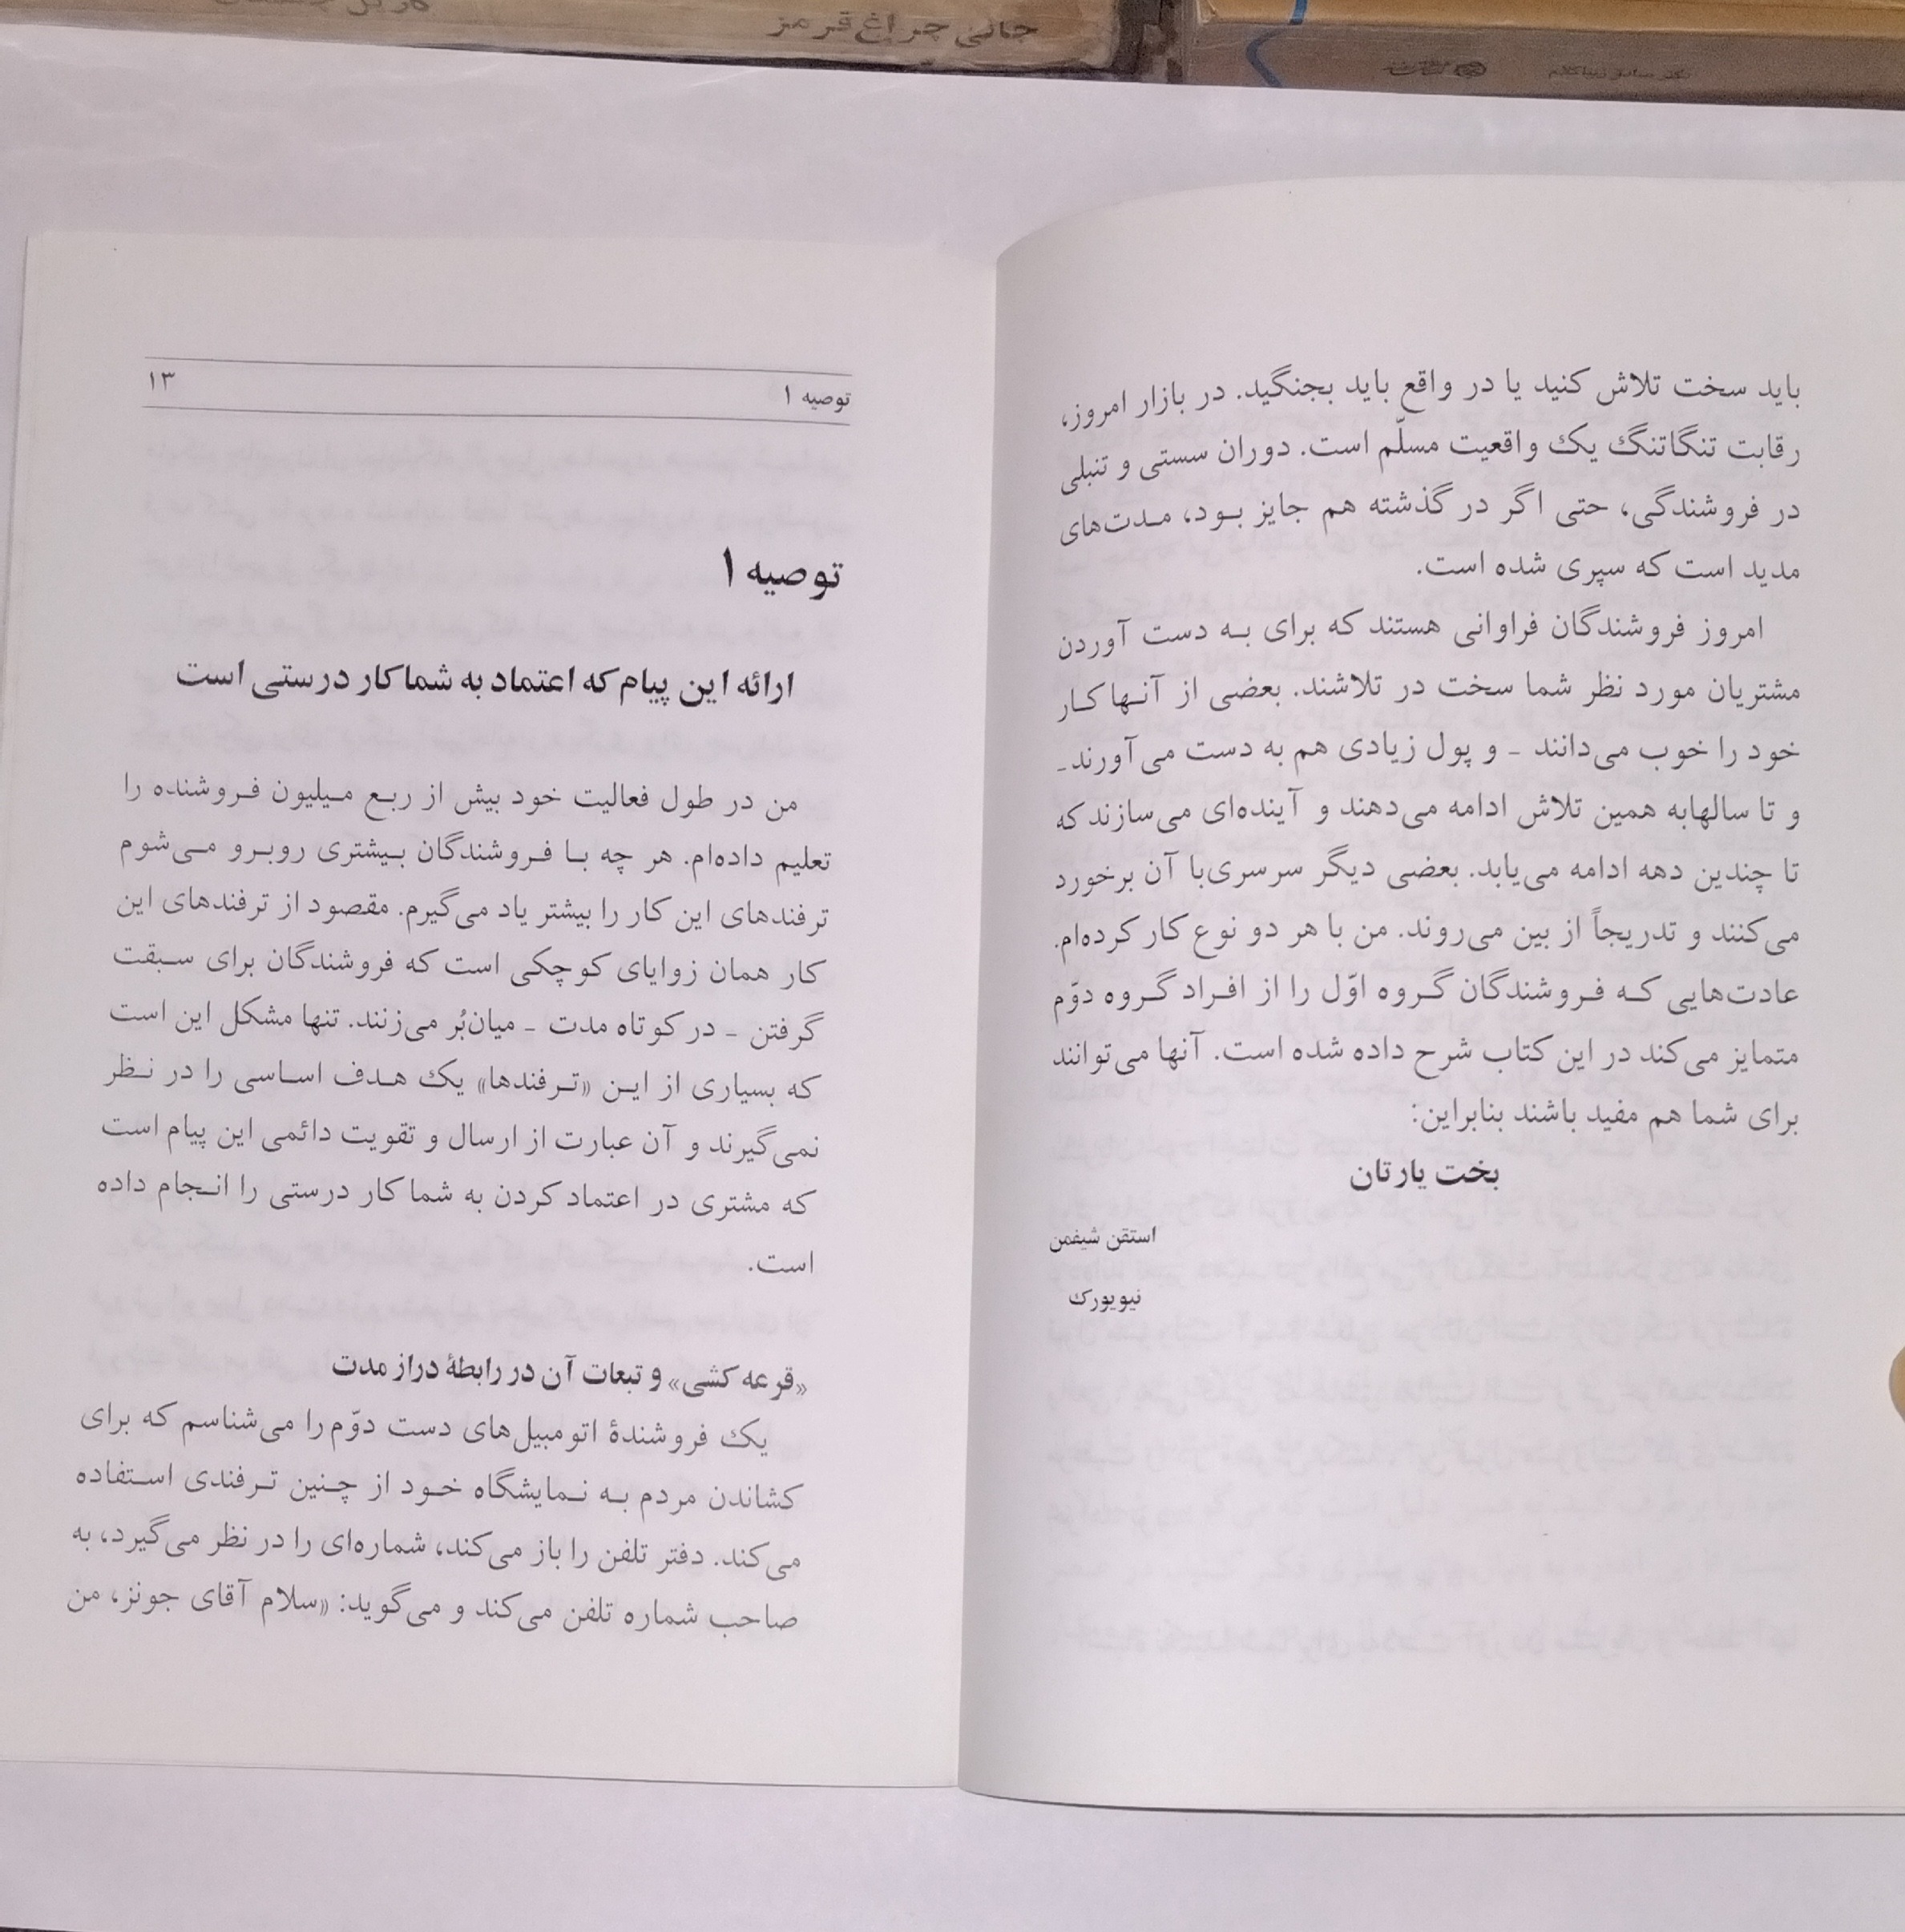 جانی چراغ قرمز
باید سخت تلاش کنید یا در واقع باید بجنگید. در بازار امروز،
رقابت تنگاتنگ یک واقعیت مسلّم است. دوران سستی و تنبلی
در فروشندگی، حتی اگر در گذشته هم جایز بود، مدت‌های
مدید است که سپری شده است.
امروز فروشندگان فراوانی هستند که برای به دست آوردن
مشتریان مورد نظر شما سخت در تلاشند. بعضی از آنها کار
خود را خوب می‌دانند - و پول زیادی هم به دست می‌آورند -
و تا سالهابه همین تلاش ادامه می‌دهند و آینده‌ای می‌سازند که
تا چندین دهه ادامه می‌یابد. بعضی دیگر سرسری‌با آن برخورد
می‌کنند و تدریجاً از بین می‌روند. من با هر دو نوع کار کرده‌ام.
عادت‌هایی که فروشندگان گروه اوّل را از افراد گروه دوّم
متمایز می‌کند در این کتاب شرح داده شده است. آنها می‌توانند
برای شما هم مفید باشند بنابراین:
بخت یارتان
استفن شیفمن
نیویورک
توصیه ۱ ۱۳
توصیه ۱
ارائه این پیام که اعتماد به شما کار درستی است
من در طول فعالیت خود بیش از ربع میلیون فروشنده را
تعلیم داده‌ام. هر چه با فروشندگان بیشتری روبرو می‌شوم
ترفندهای این کار را بیشتر یاد می‌گیرم. مقصود از ترفندهای این
کار همان زوایای کوچکی است که فروشندگان برای سبقت
گرفتن - در کوتاه مدت - میان‌بُر می‌زنند. تنها مشکل این است
که بسیاری از این «ترفندها» یک هدف اساسی را در نظر
نمی‌گیرند و آن عبارت از ارسال و تقویت دائمی این پیام است
که مشتری در اعتماد کردن به شما کار درستی را انجام داده
است.
«قرعه کشی» و تبعات آن در رابطهٔ دراز مدت
یک فروشندهٔ اتومبیل‌های دست دوّم را می‌شناسم که برای
کشاندن مردم به نمایشگاه خود از چنین ترفندی استفاده
می‌کند. دفتر تلفن را باز می‌کند، شماره‌ای را در نظر می‌گیرد، به
صاحب شماره تلفن می‌کند و می‌گوید: «سلام آقای جونز، من